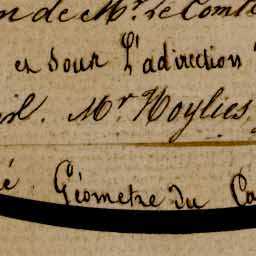 de Mr. Le Comte
et sous l'adirection
Mr Noylies
Géometre Du Ca